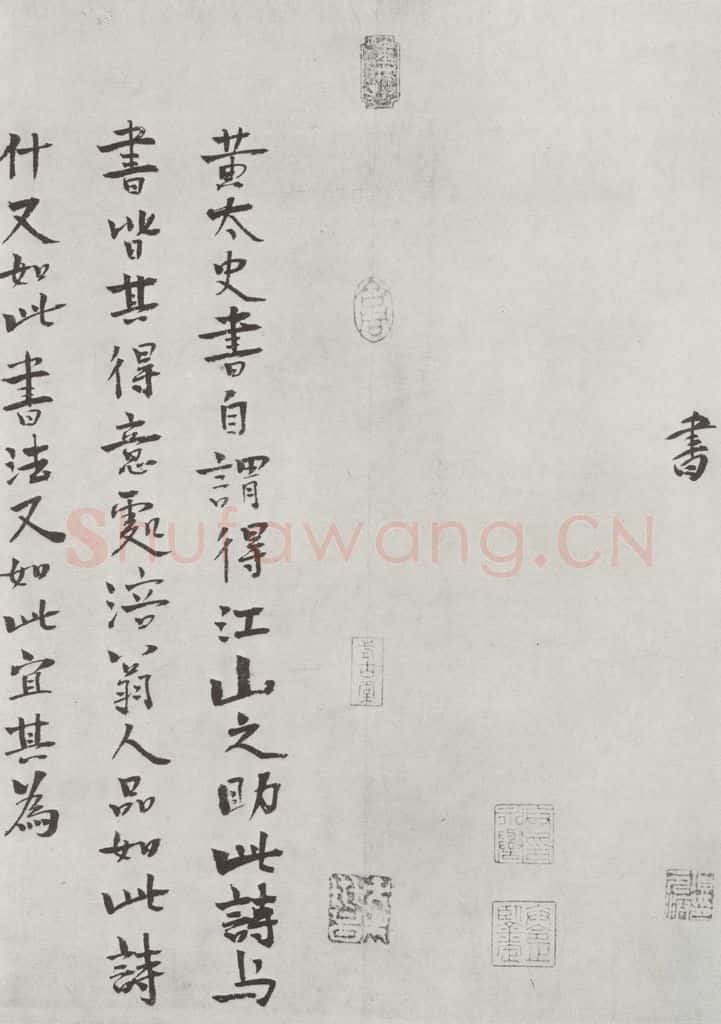 書
黄太史書自謂得江山之助此詩与
書皆其得意處涪翁人品如此詩
什又如此書法又如此宜其為
Shufawang.CN